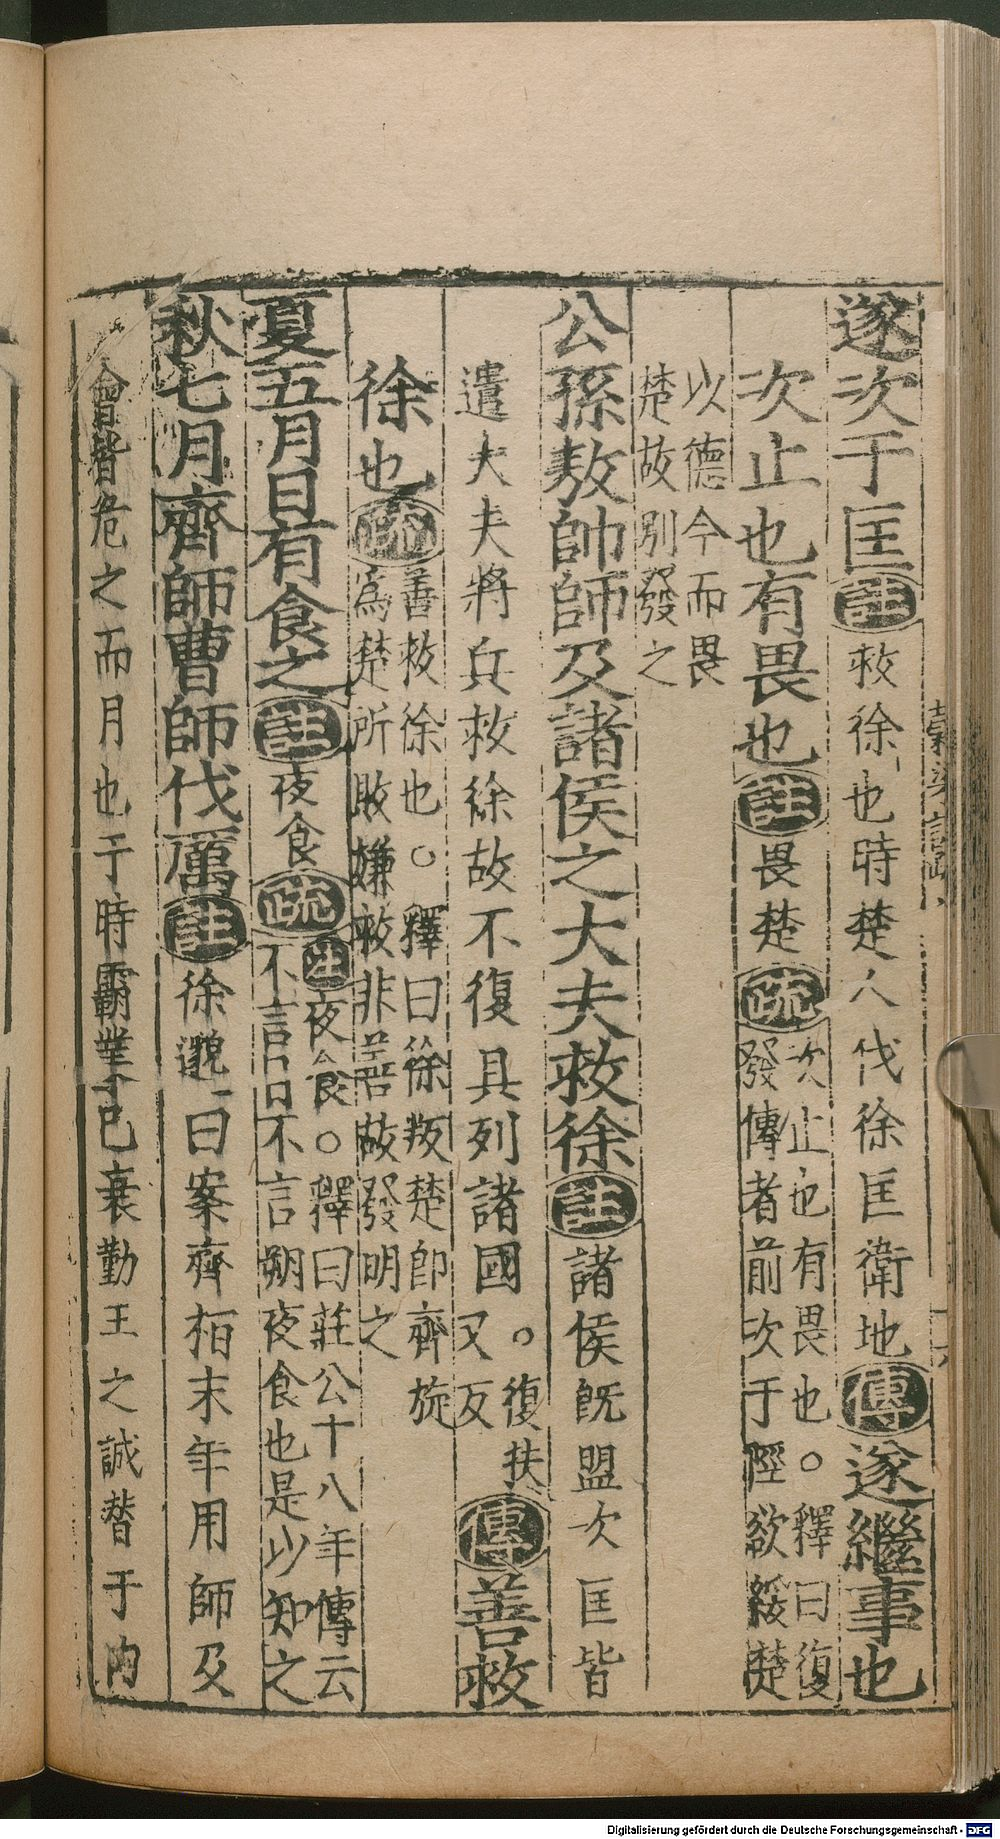 遂次于匡註救徐也時楚人伐徐匡衛地傳遂繼事也
次止也有畏也註畏楚疏次止也有畏也○釋曰復
發傳者前次于陘欲綏楚
以德今而畏
楚故別發之
公孫敖帥師及諸侯之大夫救徐註諸侯既盟次匡皆
遣大夫將兵救徐故不復具列諸國○復扶
又反傳善救
徐也疏善救徐也○釋曰徐叛楚即齊旋
為楚所敗嫌救非善故發明之
夏五月日有食之註夜食疏註夜食○釋曰莊公十八年傳云
不言日不言朔夜食也是以知之
秋七月齊師曹師伐厲註徐邈曰案齊桓末年用師及
會皆危之而月也于時霸業已衰勤王之誠替于內
Digitalisierung gefördert durch die Deutsche Forschungsgemeinschaft - DFG